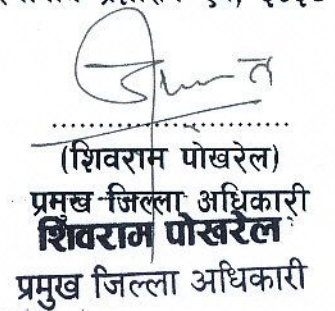 (शिवराम पोखरेल)
प्रमुख जिल्ला अधिकारी
शिवराम पोखरेल
प्रमुख जिल्ला अधिकारी